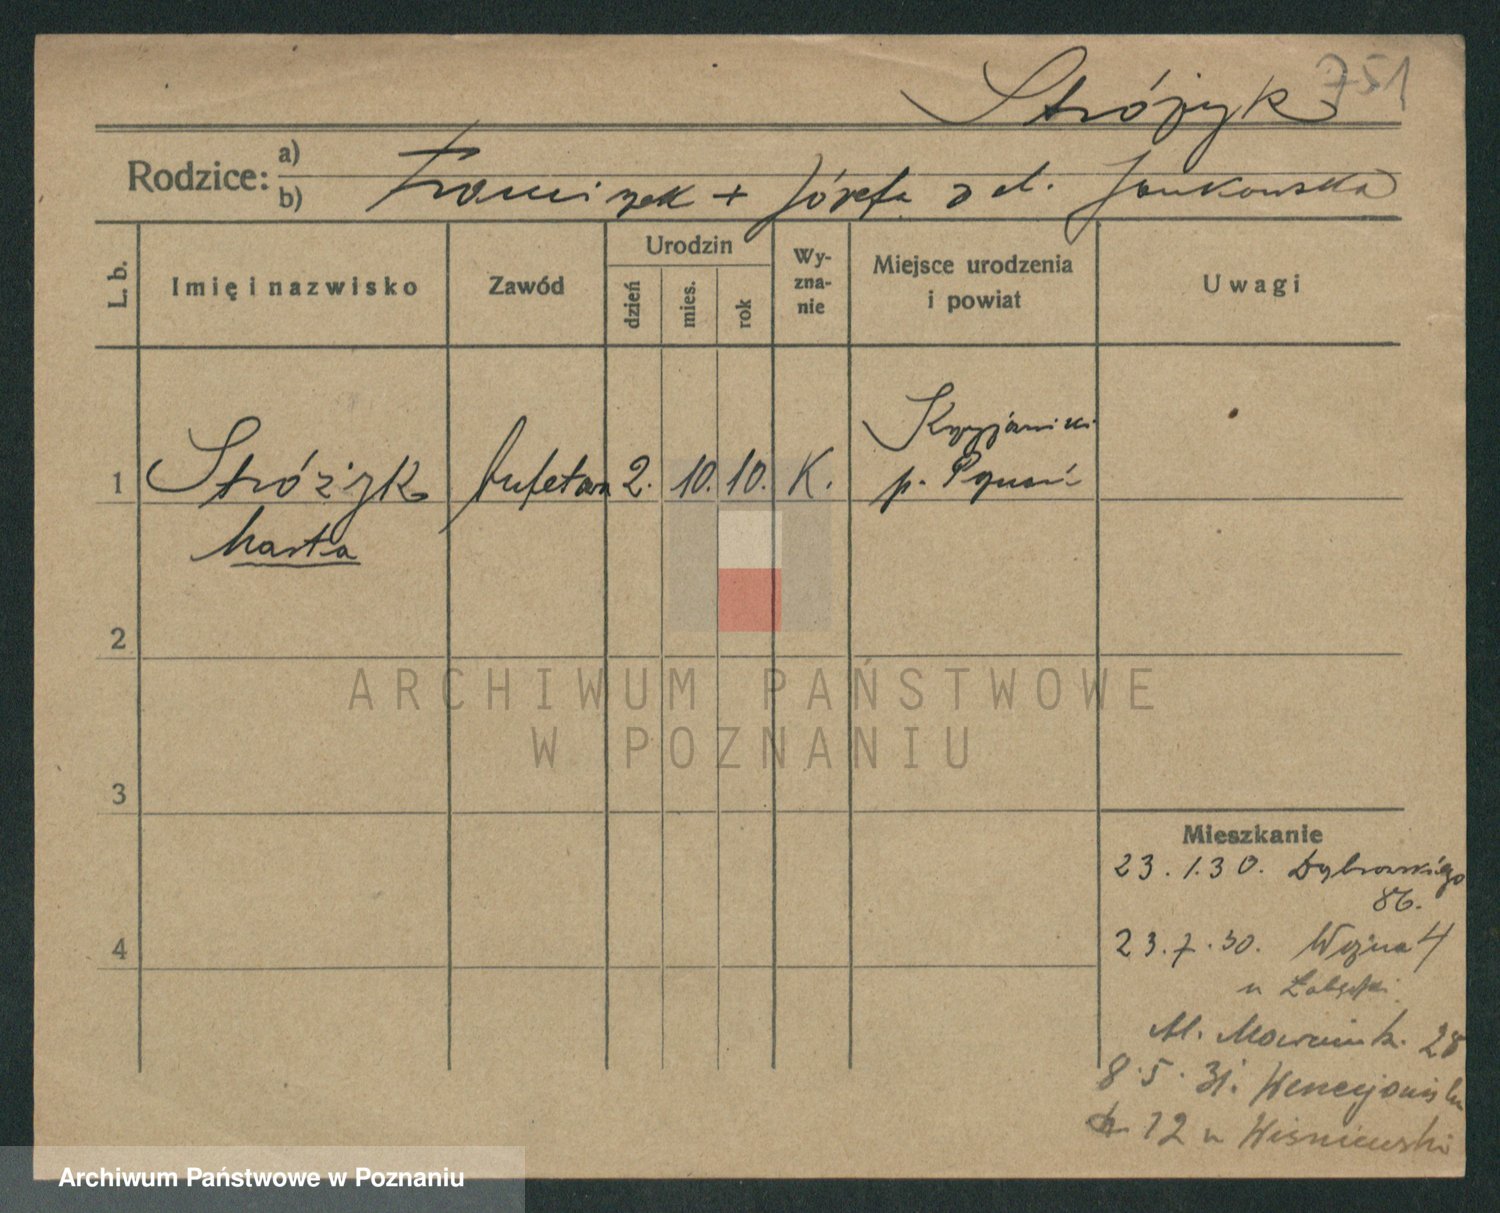 751
Stróżyk
Rodzice: a)
b) Franciszek + Józefa z d. Jankowska
L. b.
Imię i nazwisko
Zawód
Urodzin
dzień
mies.
rok
Wy-
zna-
nie
Miejsce urodzenia
i powiat
Uwagi
1 Stróżyk bufetowa 2. 10. 10. K. Krzyżowniki
p. Poznań
Marta
2
3
4
Mieszkanie
23.1.30. Dąbrowskiego
86.
23.7.30. Woźna 4
u
Al. Marcink. 28
8.5.31. Wenecjańska
12 u Wiśniewski
ARCHIWUM PAŃSTWOWE
W POZNANIU
Archiwum Państwowe w Poznaniu